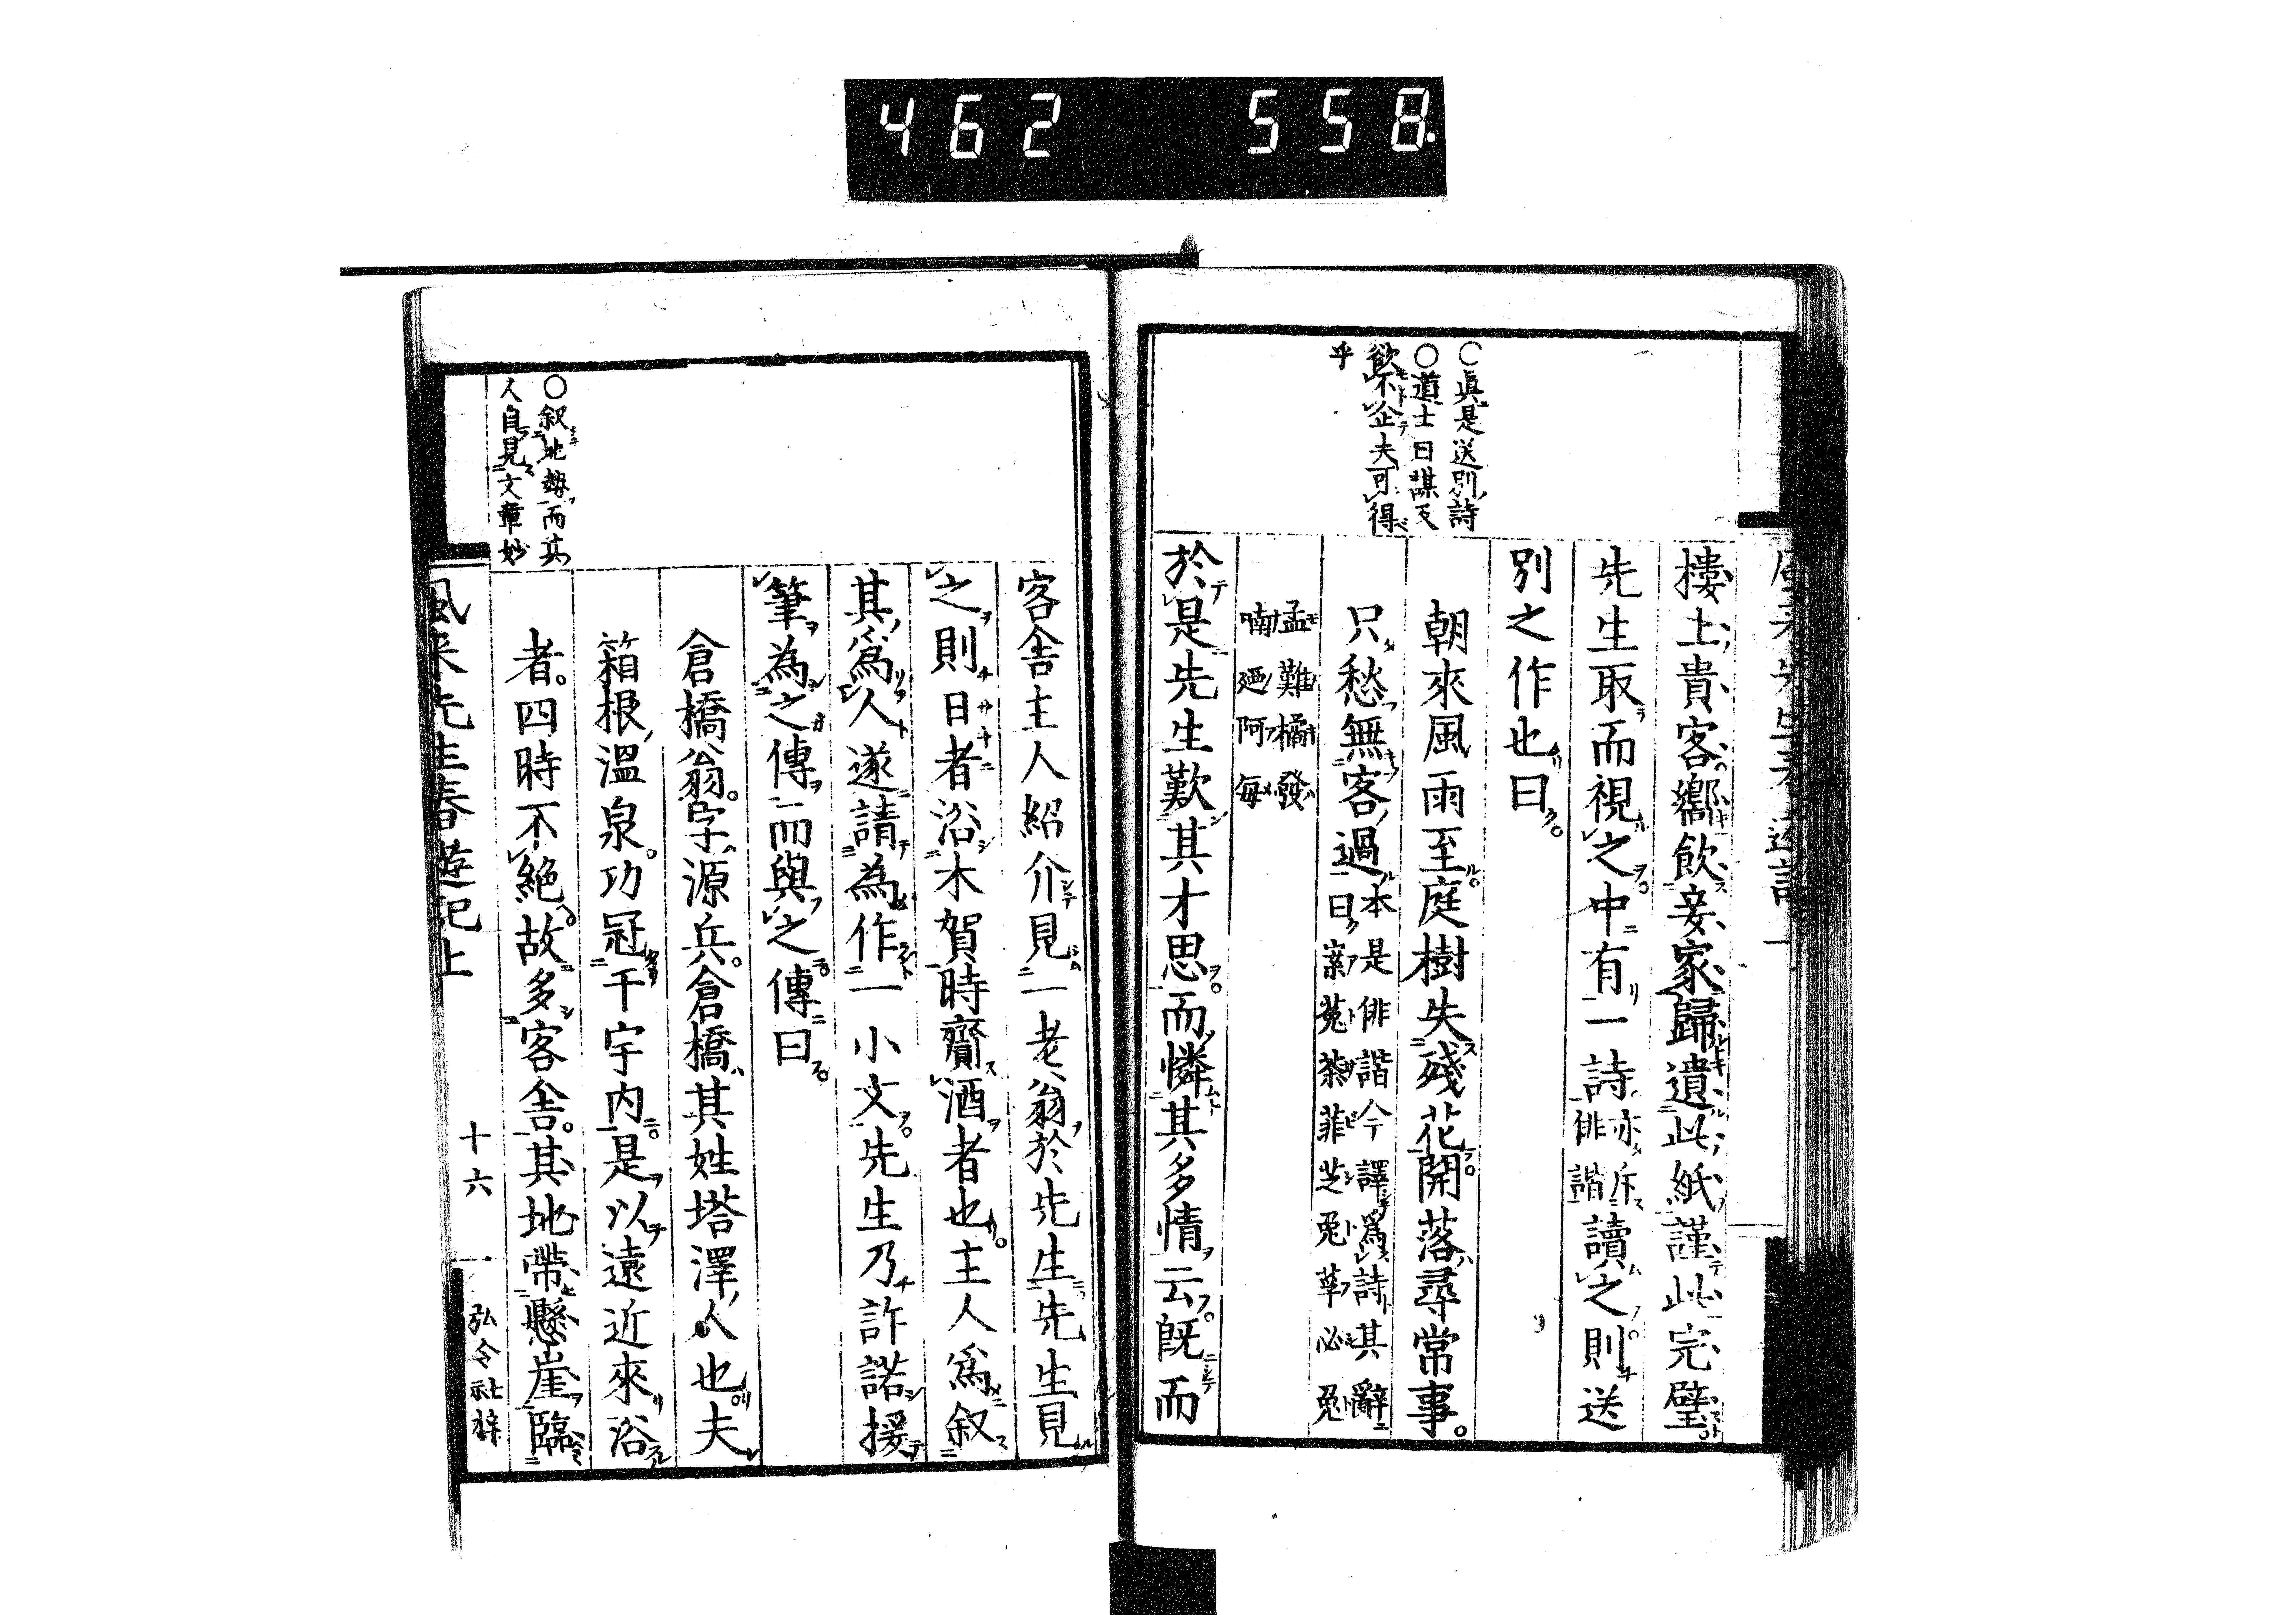 462 558.
○眞是送別詩
○道士曰謀反
飲不企夫可得
乎
樓上貴客嚮飲妾家歸遺此紙謹此完璧
先生取而視之中有一詩亦斥俳諧讀之則送
別之作也曰
朝來風雨至庭樹失殘花開落尋常事
只愁無客過本是俳諧今譯爲詩其辭曰
孟難橘發
喃廼阿毎
於是先生歎其才思而憐其多情云既而
客舎主人紹介見一老翁於先生先生見
之則日者浴木賀時齎酒者也主人爲叙
其爲人遂請為作一小文先生乃許諾援
筆為之傳而與之傳曰
倉橋翁字源兵倉橋其姓塔澤人也夫
箱根溫泉功冠千宇内是以遠近來浴
者四時不絶故多客舎其地帶懸崖臨
○叙地勢而其
人自見文章妙
風来先生春遊記上
十六
弘令社梓